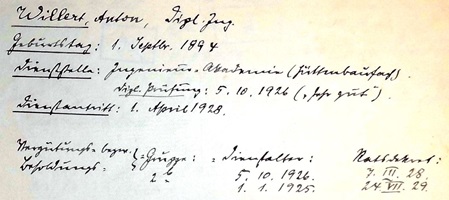 Willert, Anton, Dipl. Ing.
Geburtstag: 1. Septbr. 1894
Dienststelle: Ingenieur-Akademie (Hüttenbaufach).
Dipl. Prüfung: 5. 10. 1926 („Sehr gut").
Dienstantritt: 1. April 1928.
Vergütungs- bezw. Besoldungs- } Gruppe: = Dienstalter: Ratsdekret:
2 b 5. 10. 1926. 7. III. 28.
1. 1. 1925. 24. VII. 29.